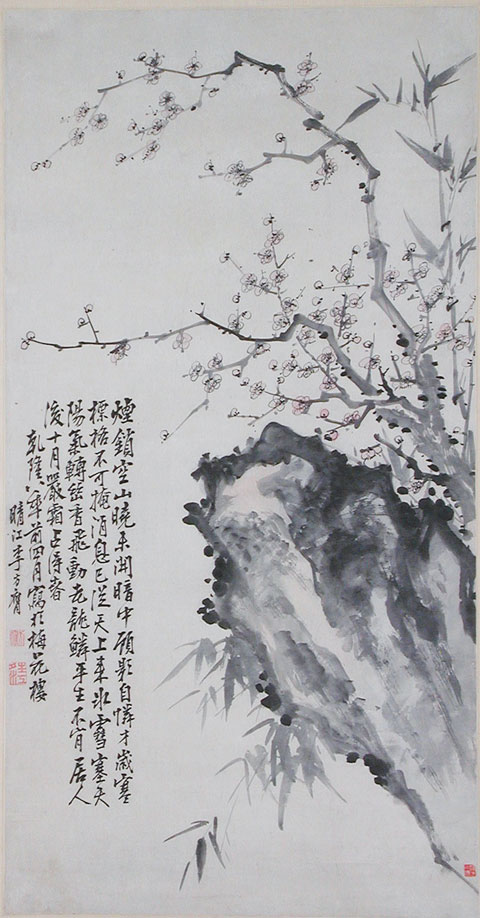 煙鎖空山曉未開暗中顧影自憐才歲寒
標格不可掩消息已從天上來氷雪塞天
陽氣轉香飛動老龍鱗平生不肯居人
後十月嚴霜占得春
乾隆八年前四月寫於梅花樓
晴江李方膺